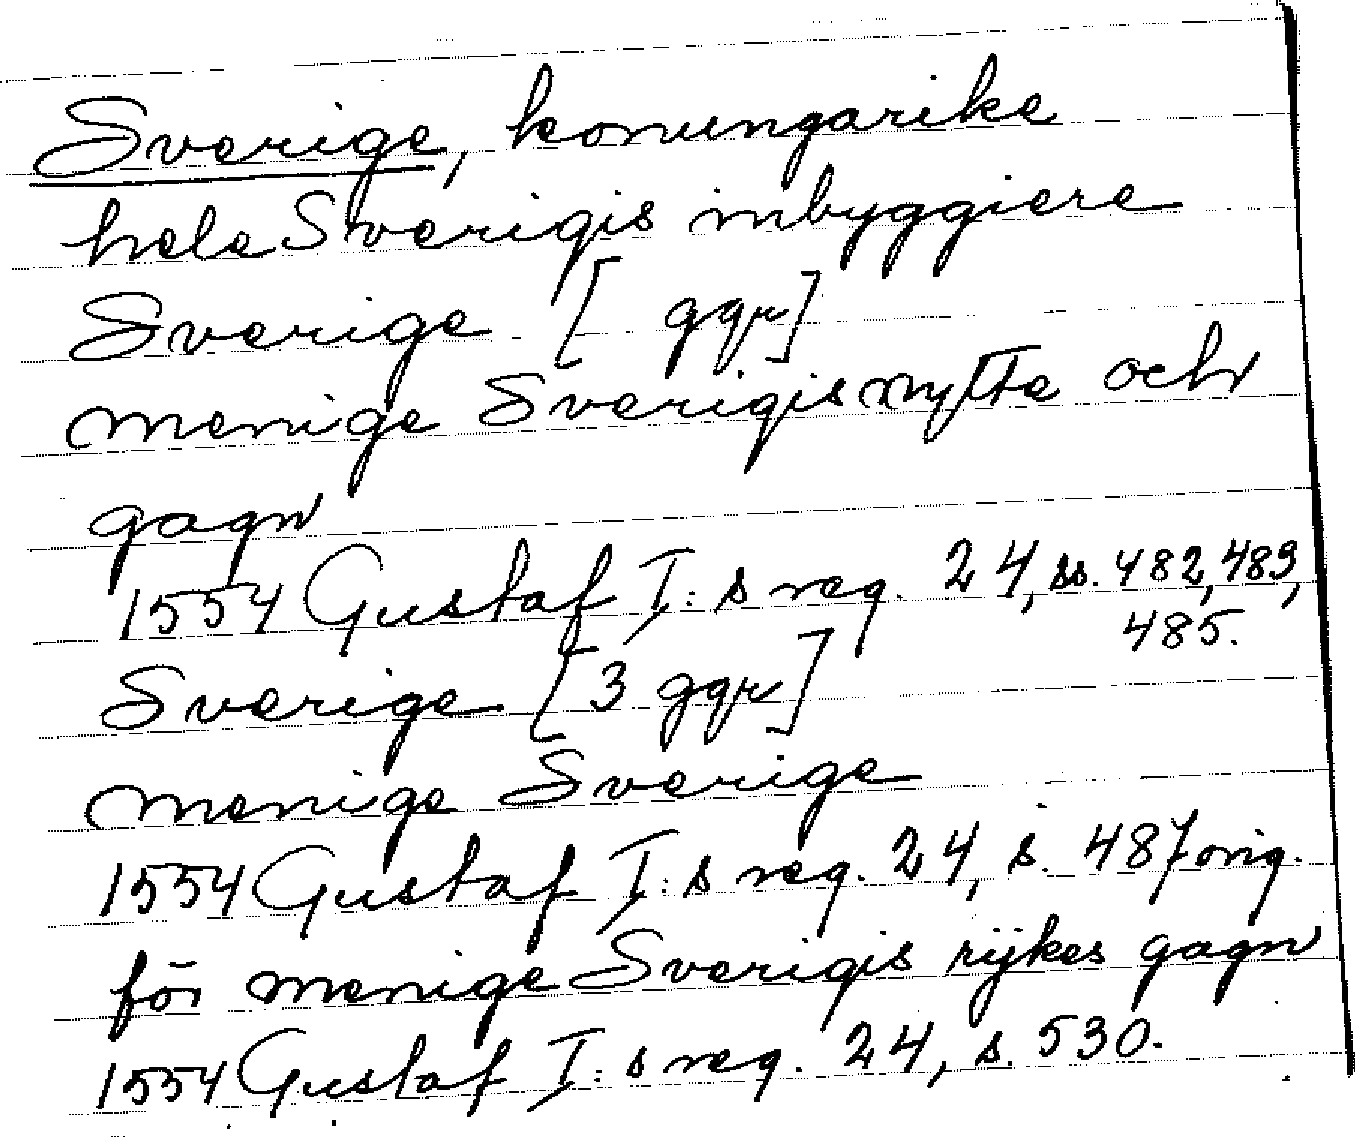 Sverige, konungarike
hele Sverigis inbyggiere
Sverige [ ggr]
menige Sverigis nytte och
gagn
1554 Gustaf I:s reg. 24, ss. 482, 483,
485.
Sverige [3 ggr]
menige Sverige
1554 Gustaf I:s reg. 24, s. 487 orig.
för menige Sverigis rijkes gagn
1554 Gustaf I:s reg. 24, s. 530.